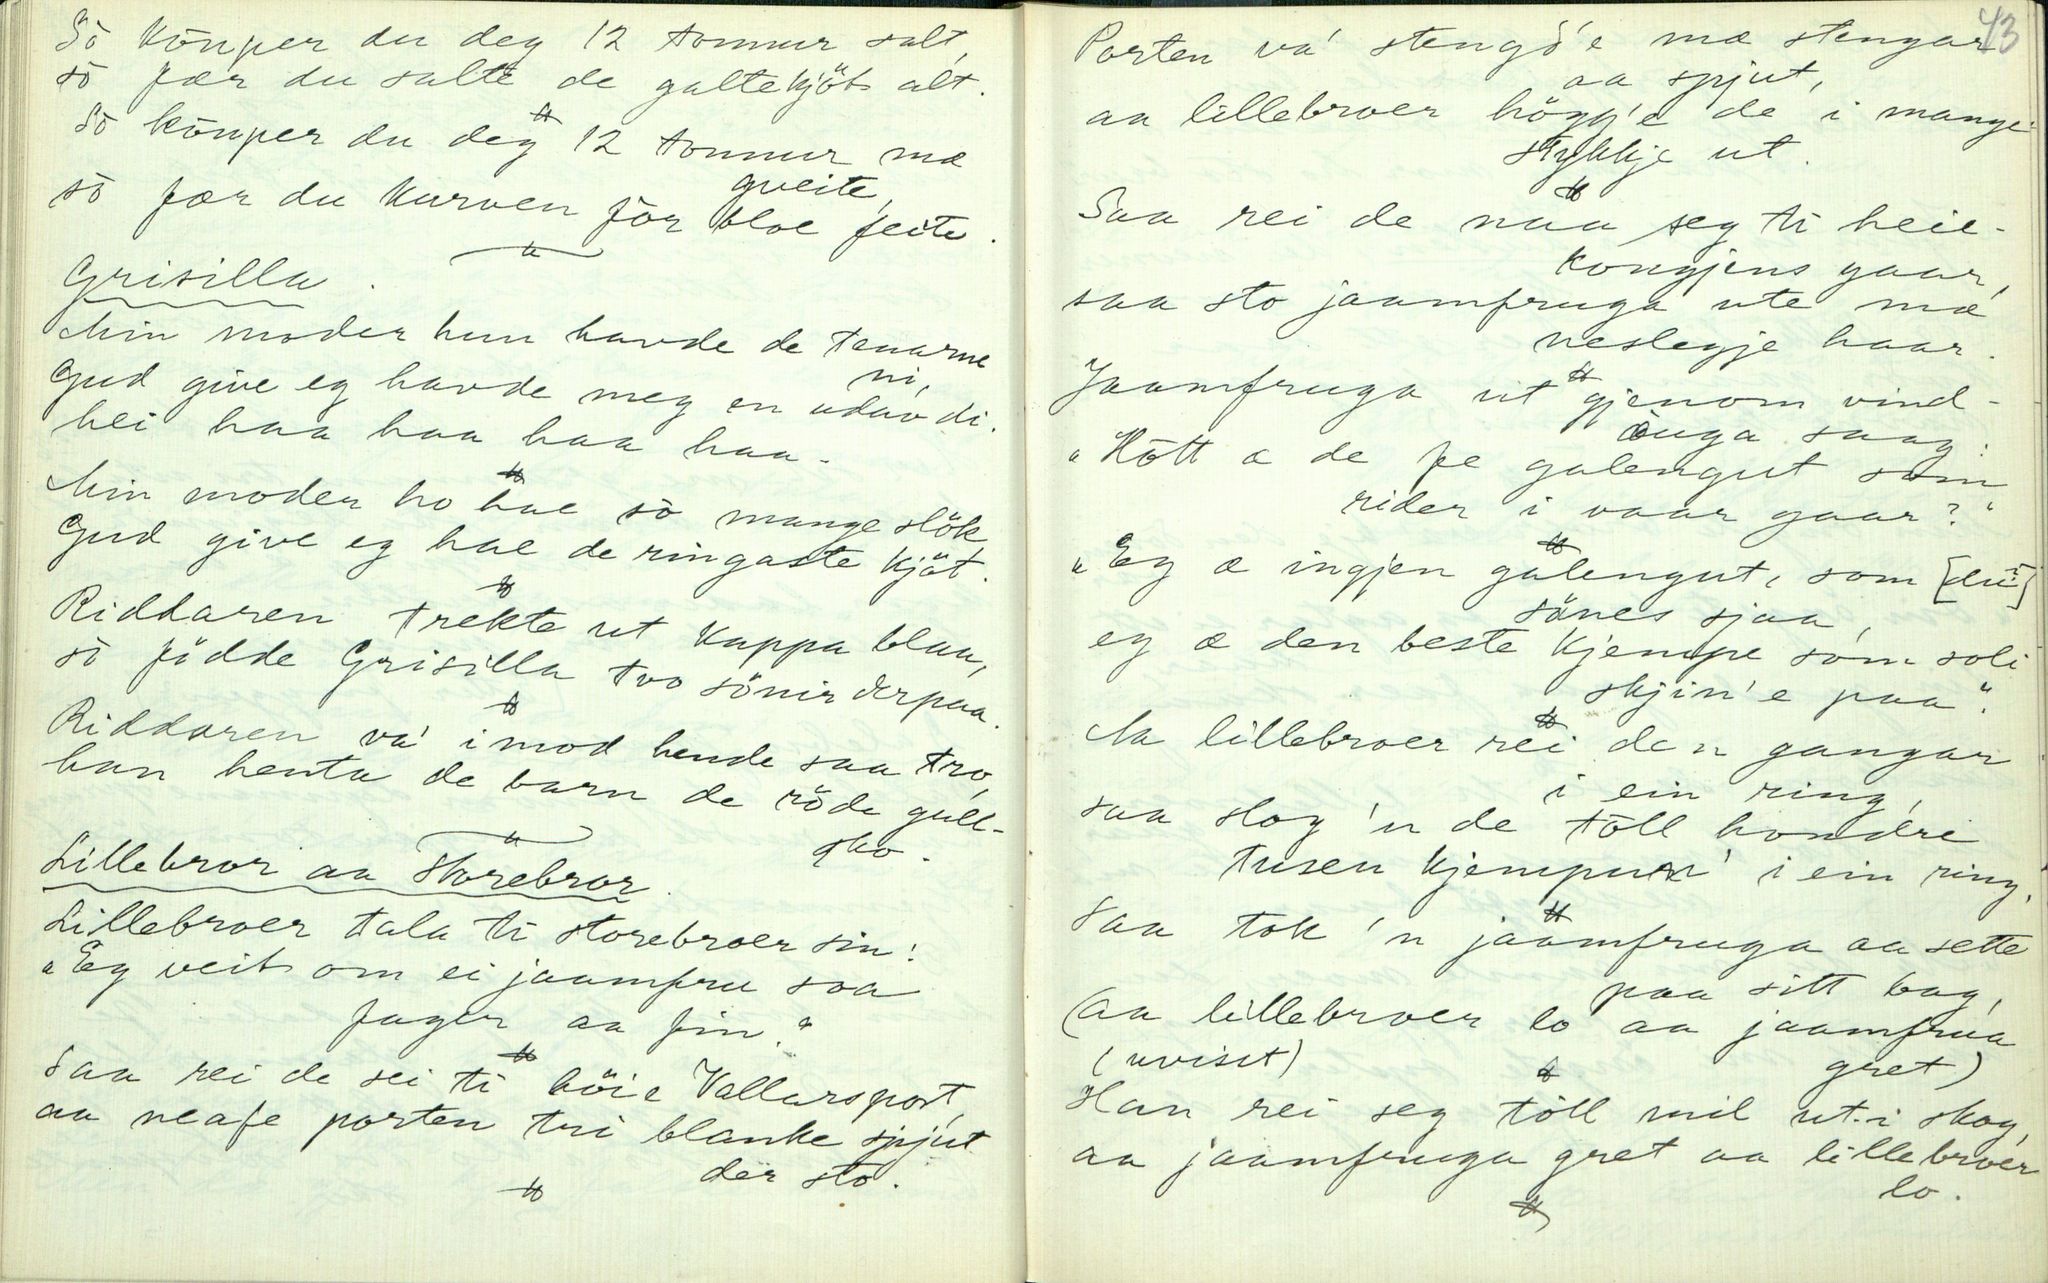 Sò kòuper du deg 12 tonnur salt,
sò fær du salte de galtekjöt alt.
Sò kòuper du deg 12 tonnur mæ
gveite,
sò fær du kurven fòr bloe feite.
Grisilla.
Min moder hun havde de tenarne
ni,
Gud give eg havde meg en udav di.
hei haa haa haa haa.
Min moder ho hae sò mange slök
Gud give eg hae de ringaste kjöt.
Riddaren trekte ut kappa blaa,
sò födde Grisilla tvo sönir derpaa.
Riddaren va' imod hende saa tro,
han henta de barn de röde gull-
sko.
Lillebror aa Storebror.
Lillebroer tala ti storebroer sin:
"Eg veit om ei jaamfru soa
fager aa fin."
Saa rei de sei ti höie Vallarsport,
aa neafe porten tri blanke spjut
der sto.
43
Porten va' stengd'e mæ stengar
aa spjut,
aa lillebroer högg'e de i mange
stykkje ut.
Saa rei de naa seg ti heie-
kongjens gaar,
saa sto jaamfruga ute mæ
neslegje haar.
Jaamfruga ut gjenom vind-
òuga saag:
"Hòtt æ de fe galengut som
rider i vaar gaar?"
"Eg æ ingjen galengut, som [du?]
sönes sjaa,
eg æ den beste kjempe som soli
skjin'e paa".
Aa lillebroer rei den gangar
i ein ring,
saa slog 'n de tòll hondre
tusen kjempur' i ein ring.
Saa tok 'n jaamfruga aa sette
paa sitt bag,
(aa lillebroer lo aa jaamfrua
(uvisst) gret)
Han rei seg tòll mil ut i skog,
aa jaamfruga gret aa lillebroer
lo.